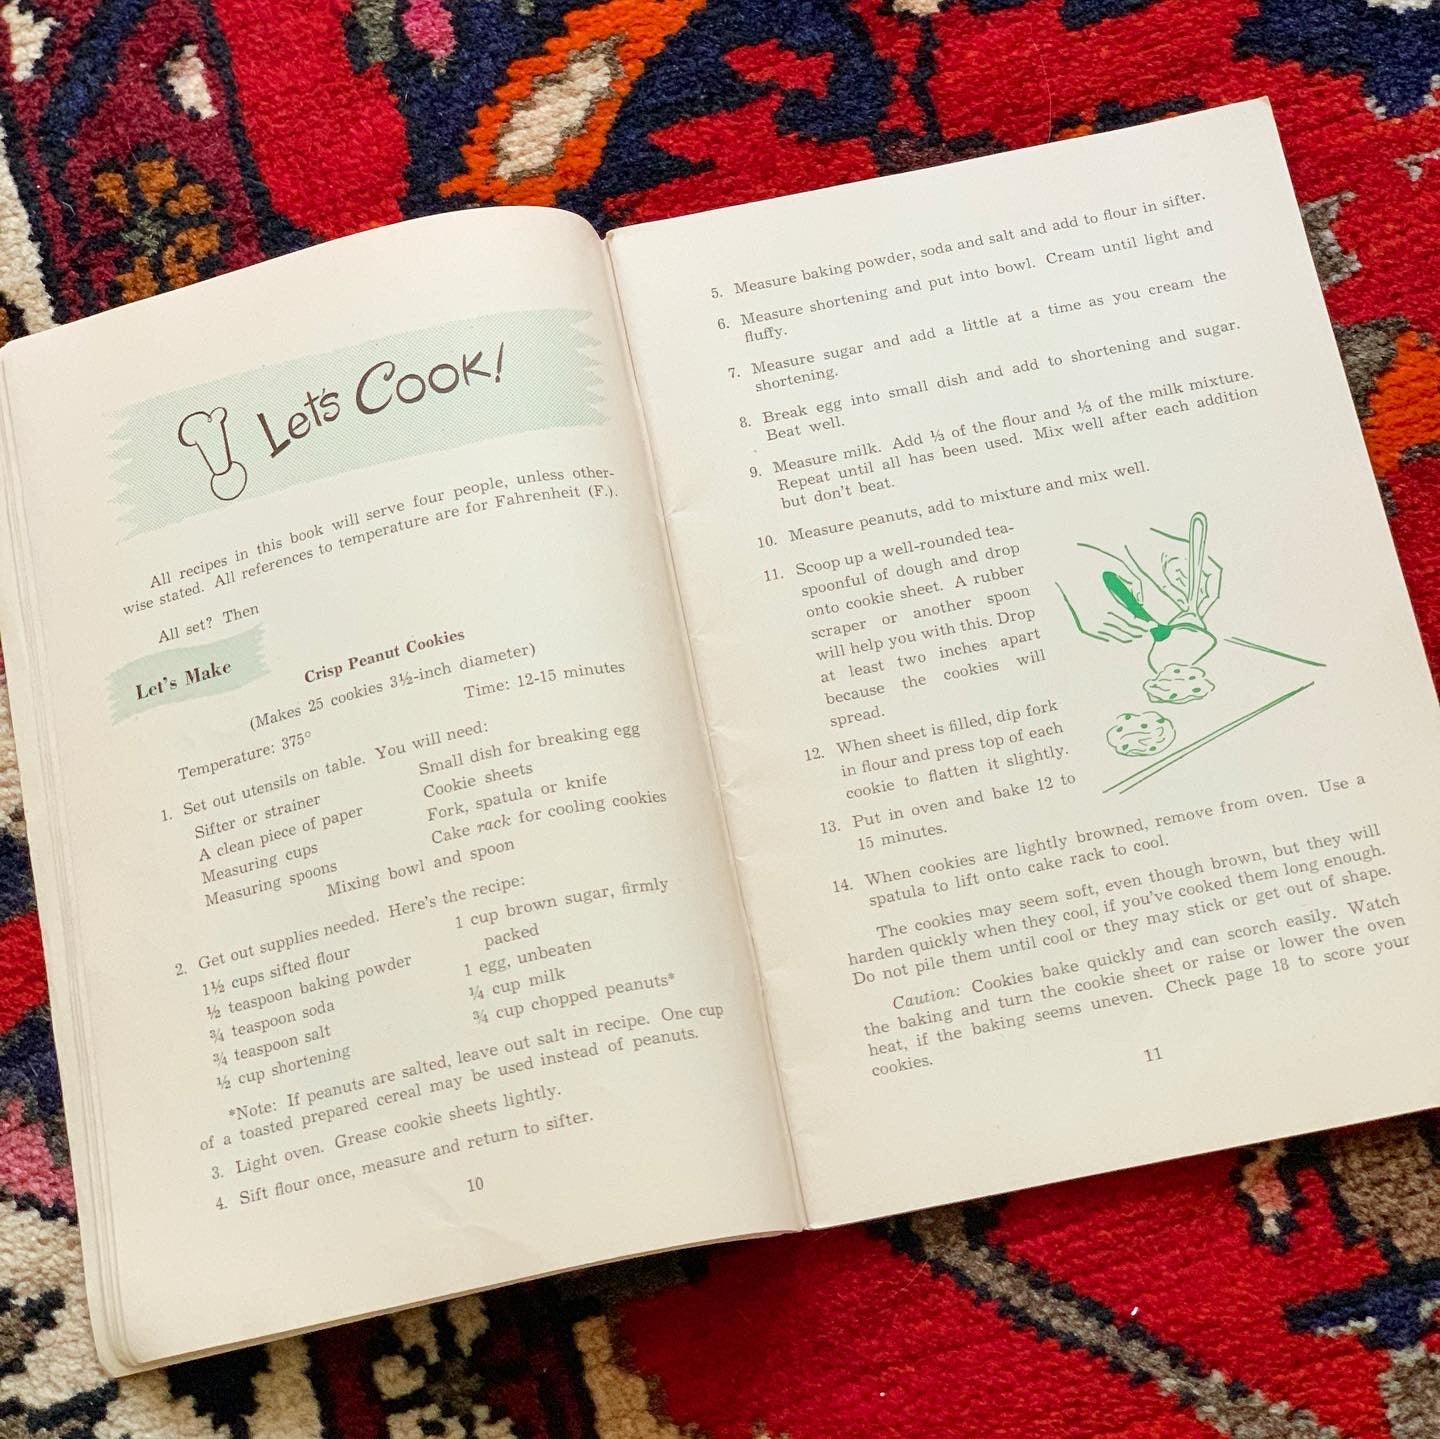 Let's Cook!
All recipes in this book will serve four people, unless other-
wise stated. All references to temperature are for Fahrenheit (F.).
All set? Then
Let's Make
Crisp Peanut Cookies
(Makes 25 cookies 3½-inch diameter)
Temperature: 375° Time: 12-15 minutes
1. Set out utensils on table. You will need:
Sifter or strainer
A clean piece of paper
Measuring cups
Measuring spoons
Small dish for breaking egg
Cookie sheets
Fork, spatula or knife
Cake rack for cooling cookies
Mixing bowl and spoon
2. Get out supplies needed. Here's the recipe:
1½ cups sifted flour
½ teaspoon baking powder
¾ teaspoon soda
¾ teaspoon salt
½ cup shortening
1 cup brown sugar, firmly
packed
1 egg, unbeaten
¼ cup milk
¾ cup chopped peanuts*
*Note: If peanuts are salted, leave out salt in recipe. One cup
of a toasted prepared cereal may be used instead of peanuts.
3. Light oven. Grease cookie sheets lightly.
4. Sift flour once, measure and return to sifter.
10
5. Measure baking powder, soda and salt and add to flour in sifter.
6. Measure shortening and put into bowl. Cream until light and
fluffy.
7. Measure sugar and add a little at a time as you cream the
shortening.
8. Break egg into small dish and add to shortening and sugar.
Beat well.
9. Measure milk. Add ⅓ of the flour and ⅓ of the milk mixture.
Repeat until all has been used. Mix well after each addition
but don't beat.
10. Measure peanuts, add to mixture and mix well.
11. Scoop up a well-rounded tea-
spoonful of dough and drop
onto cookie sheet. A rubber
scraper or another spoon
will help you with this. Drop
at least two inches apart
because the cookies will
spread.
12. When sheet is filled, dip fork
in flour and press top of each
cookie to flatten it slightly.
13. Put in oven and bake 12 to
15 minutes.
14. When cookies are lightly browned, remove from oven. Use a
spatula to lift onto cake rack to cool.
The cookies may seem soft, even though brown, but they will
harden quickly when they cool, if you've cooked them long enough.
Do not pile them until cool or they may stick or get out of shape.
Caution: Cookies bake quickly and can scorch easily. Watch
the baking and turn the cookie sheet or raise or lower the oven
heat, if the baking seems uneven. Check page 18 to score your
cookies.
11